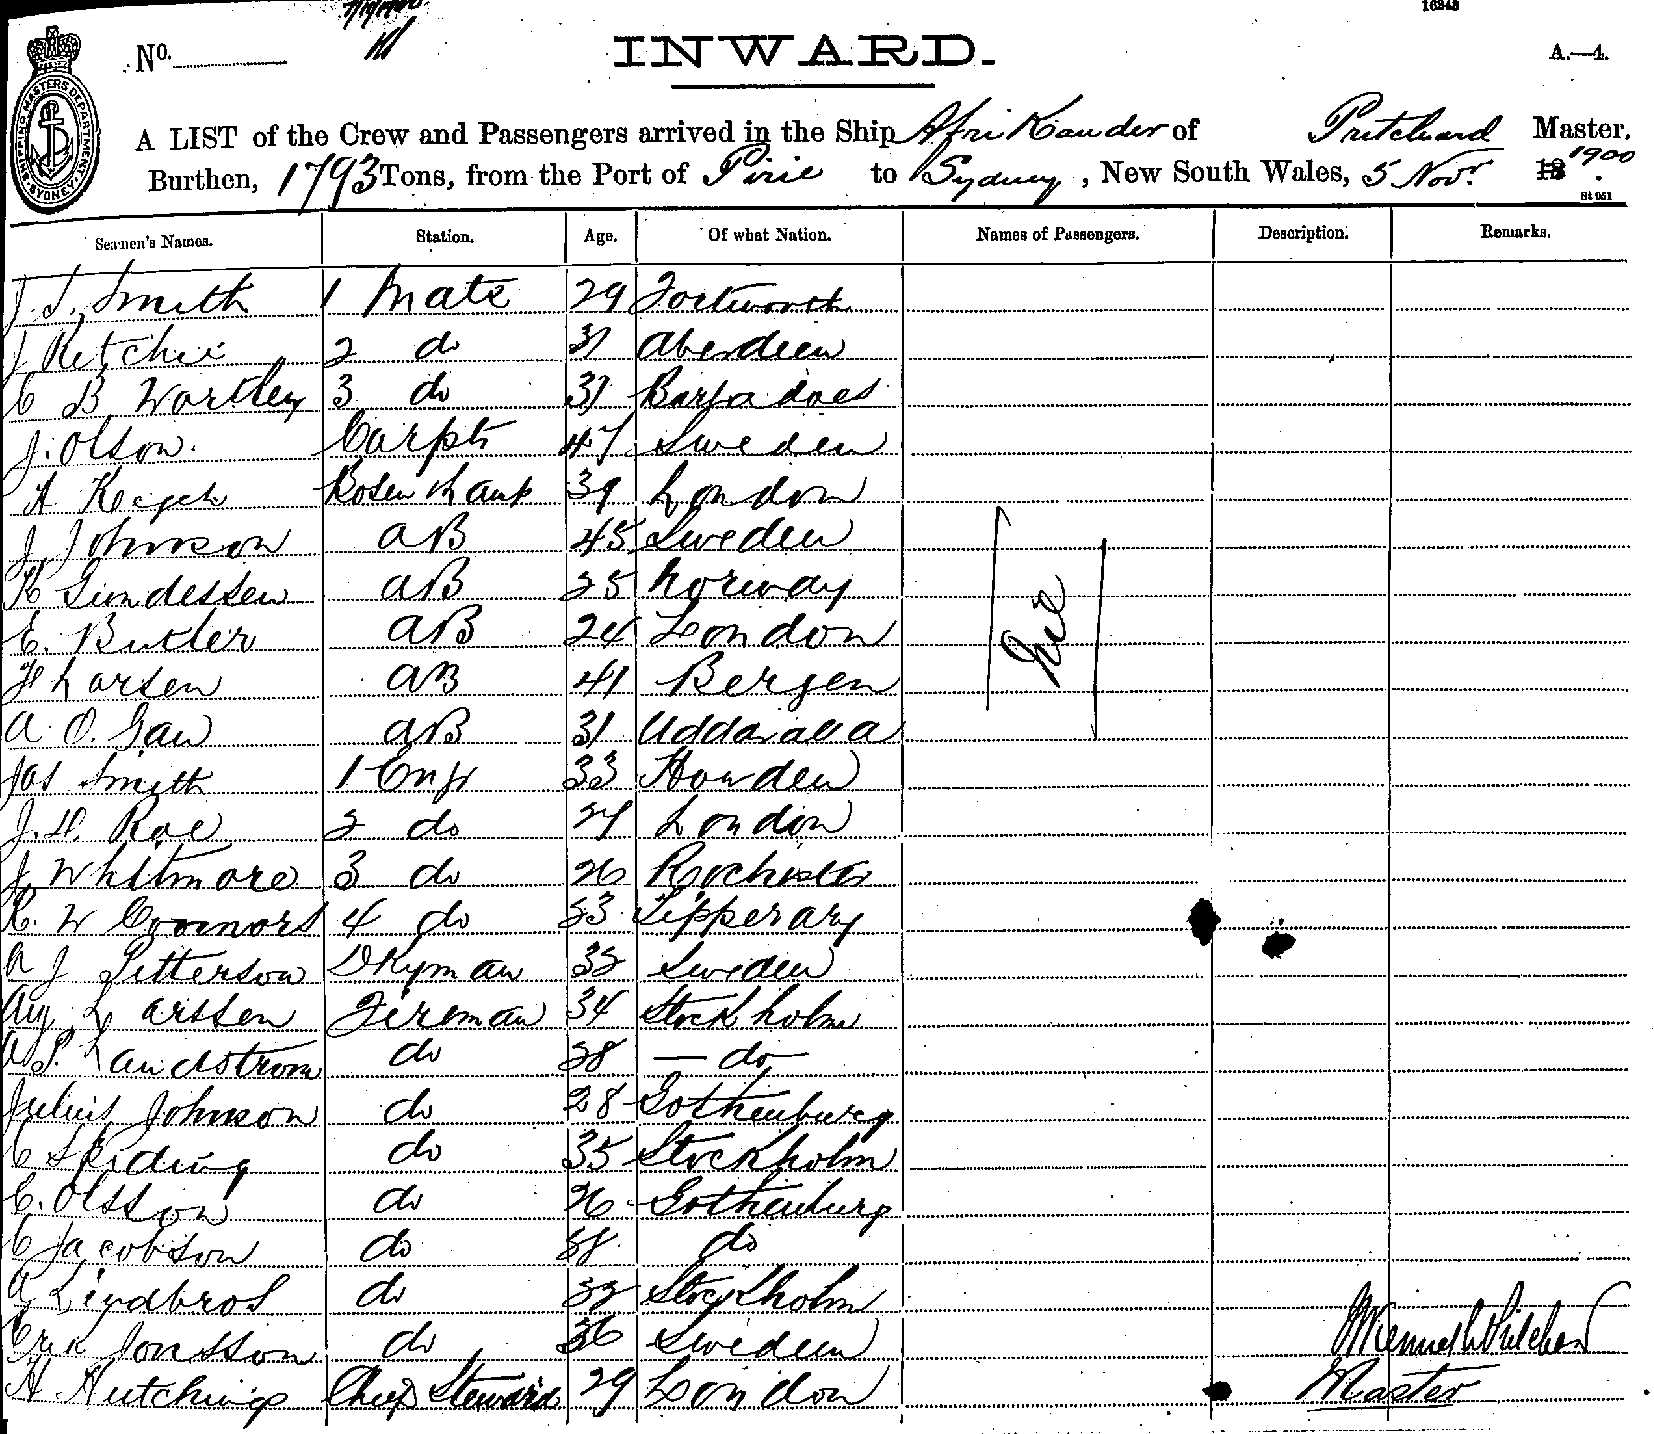 16343
No.
INWARD.
A.—4.
SHIPPING MASTERS DEPARTMENT SYDNEY
A LIST of the Crew and Passengers arrived in the Ship Afrikander of Pritchard Master.
Burthen, 1793 Tons, from the Port of Pirie to Sydney, New South Wales, 5 Novr. 18 1900
St 951
Seamen's Names. Station. Age. Of what Nation. Names of Passengers. Description. Remarks.
Smith 1 Mate 29
J Ritchie 2 do 31 Aberdeen
C B Wortley 3 do 31 Barbadoes
J. Olson. Carptr 47 Sweden
A Keych 39 London
J. Johnson AB 45 Sweden
AB 25 Norway
E. Butler AB 24 London
Larsen AB 41 Bergen
A. O. Gaw AB 31 Uddavalla
Jas Smith 1 Engr 33 Howden
J. H. Roe 2 do 27 London
J Whitmore 3 do 26 Rochester
R. W Connors 4 do 33 Tipperary
A J Petterson Dkyman 32 Sweden
Aug Larssen Fireman 34 Stockholm
A P. Landstrom do 38 — do
Julius Johnson do 28 Gothenburg
C do 35 Stockholm
C. Olsson do 26 Gothenburg
C Jacobson do 38 do
A Lindbros do 32 Stockholm
Erik Jonsson do 36 Sweden
H Hutchings Chief Steward 29 London
Master